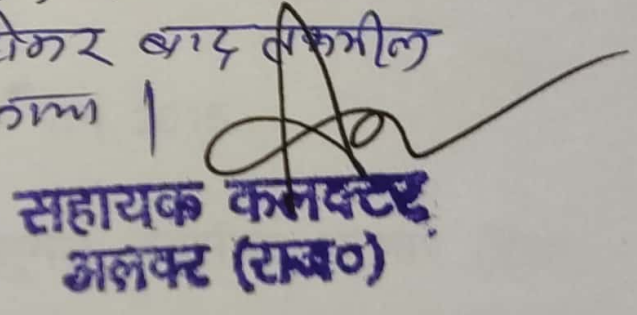 बाद तकमील
सहायक कलक्टर
अलवर (राज०)